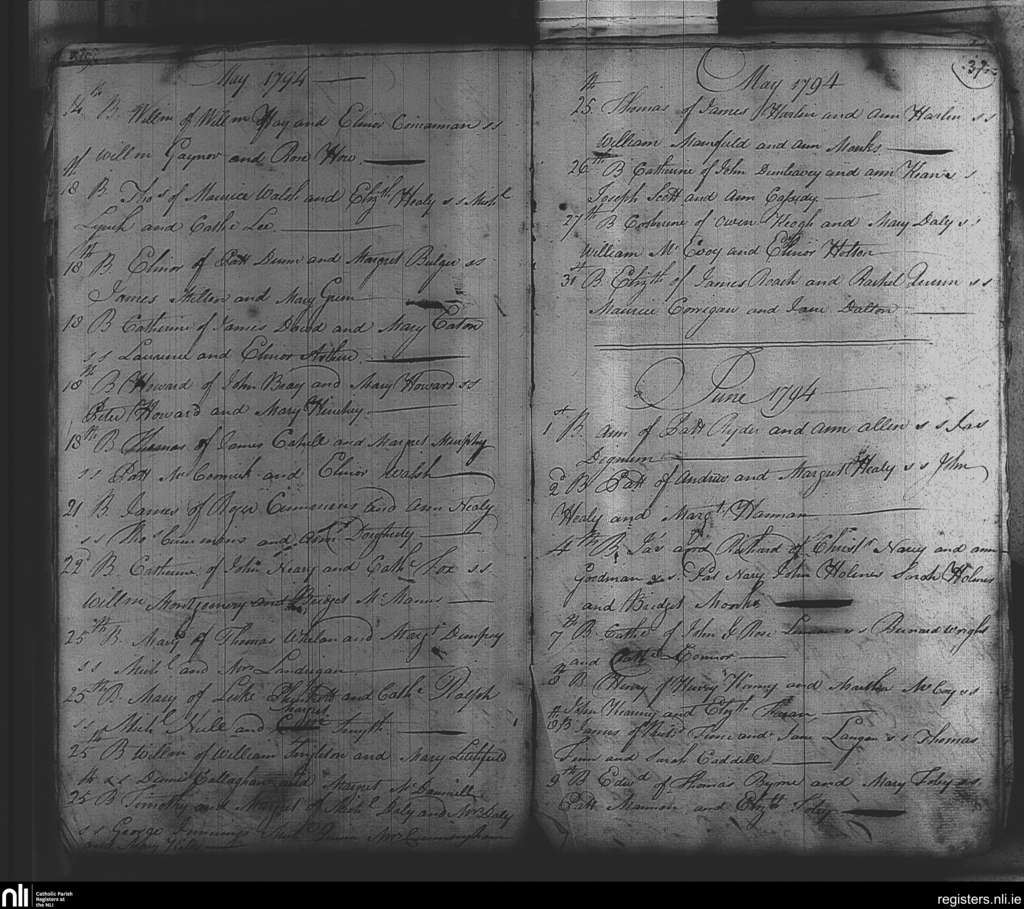 May 1794
14th B. Willm of Willm Hay and Elinor Cinnamon ss
Willm Gaynor and Rose How
18th B Thos of Maurice Walsh and Elizth Healy ss Michl
Lynch and Cathe Lee
18th B. Elinor of Patt Dunn and Margret Bulger ss
James Milton and Mary Green
18 B Catherine of James David and Mary Eaton
ss Laurence and Elinor Arthur
18th B Howard of John Bray and Mary Howard ss
Peter Howard and Mary
18th B Thomas of James Cahill and Margret Murphy
ss Patt McCormick and Elinor Walsh
21 B James of Roger Cummons and Ann Healy
ss Thos Cummons and Ann Dougherty
22d B Catherine of John Neary and Cathe Fox ss
Willm Montgomery and Bridget McManus
25th B. Mary of Thomas Whelan and Margt Dempsy
ss Michl and Mrs Landrigan
25th B Mary of Luke and Cathe Ralph
Margret
ss Michl Neill and Smyth
25th B Willm of William Singleton and Mary Litchfield
ss Dennis Callaghan and Margret McDannill
25th B Timothy and Margret of Michl Daly and Mrs Daly
ss George Jennings Michl Dunn Mrs Cunningham
and Mary
37
May 1794
25th Thomas of James Harlin and Ann Harlin ss
William Mansfield and Ann Monks
26th B Catherine of John Dunleavey and Ann Kean ss
Joseph Scott and Ann Cassidy
27th B Catherine of Owen Keogh and Mary Daly ss
William McEvoy and Elinor Holton
31st B Elizth of James Roach and Rachel Quinn ss
Maurice Corrigan and Jane Dalton
June 1794
1st B. Ann of Patt Ryder and Ann Allen ss Jas
Dignum
2d B Patt of Andrew and Margret Healy ss John
Healy and Margt Hannan
4th B Jas agod Richard of Christr Nary and Ann
Goodman ss. Pat Nary John Holmes Sarah Holmes
and Bridget Monks
7th B Cathe of John & Rose ss Bernard Wright
and Cathe Connor
8th B Henry of Henry Kearney and Martha McCoy ss
John Kearney and Elizth Faran
8th B James of Patt Finn and Jane Langan ss Thomas
Finn and Sarah Caddell
9th B Edwd of Thomas Byrne and Mary Foley ss
Patt Mannon and Elizth Foley
nli
Catholic Parish
Registers at
the NLI
registers.nli.ie